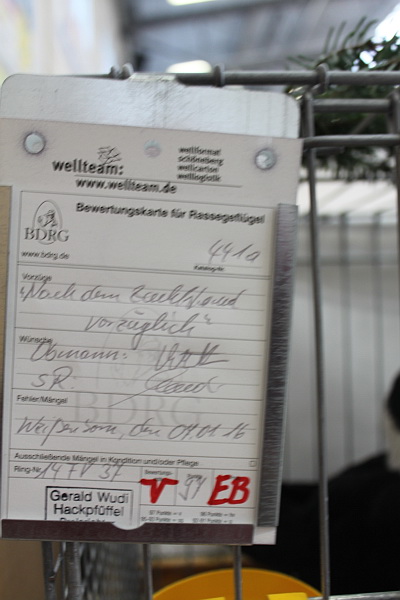 wellteam:
wellformat
schöneberg
wellcarton
welllogistik
www.wellteam.de
Bewertungskarte für Rassegeflügel
BDRG
www.bdrg.de
441a
Katalog-Nr.
Vorzüge
"Nach dem Zuchtstand
vorzüglich"
Wünsche
Obmann:
SR:
Fehler/Mängel
den 09.01.16
Ausschließende Mängel in Condition und/oder Pflege
Ring-Nr. 14 FV 37
Bewertungs-
V
EB
Gerald Wudi
Hackpfüffel